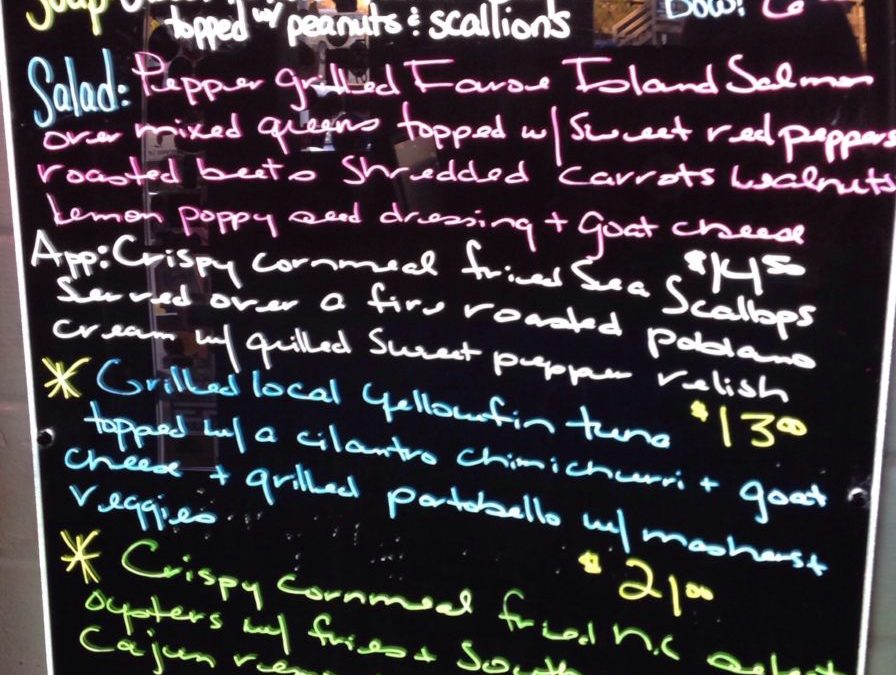 Soup
topped w/ peanuts & scallions
Bowl 6
Salad: Pepper grilled Faroe Island Salmon
over mixed greens topped w/ Sweet red peppers
roasted beets Shredded Carrots Walnuts
Lemon poppy seed dressing + goat cheese
$14.50
App: Crispy cornmeal fried Sea Scallops
Served over a fire roasted poblano
cream w/ grilled Sweet pepper relish
$13.00
* Grilled local Yellowfin tuna
topped w/ a cilantro chimichurri + goat
cheese + grilled portobello w/ mashers +
veggies
$21.00
* Crispy cornmeal fried N.C select
oysters w/ fries +
Cajun